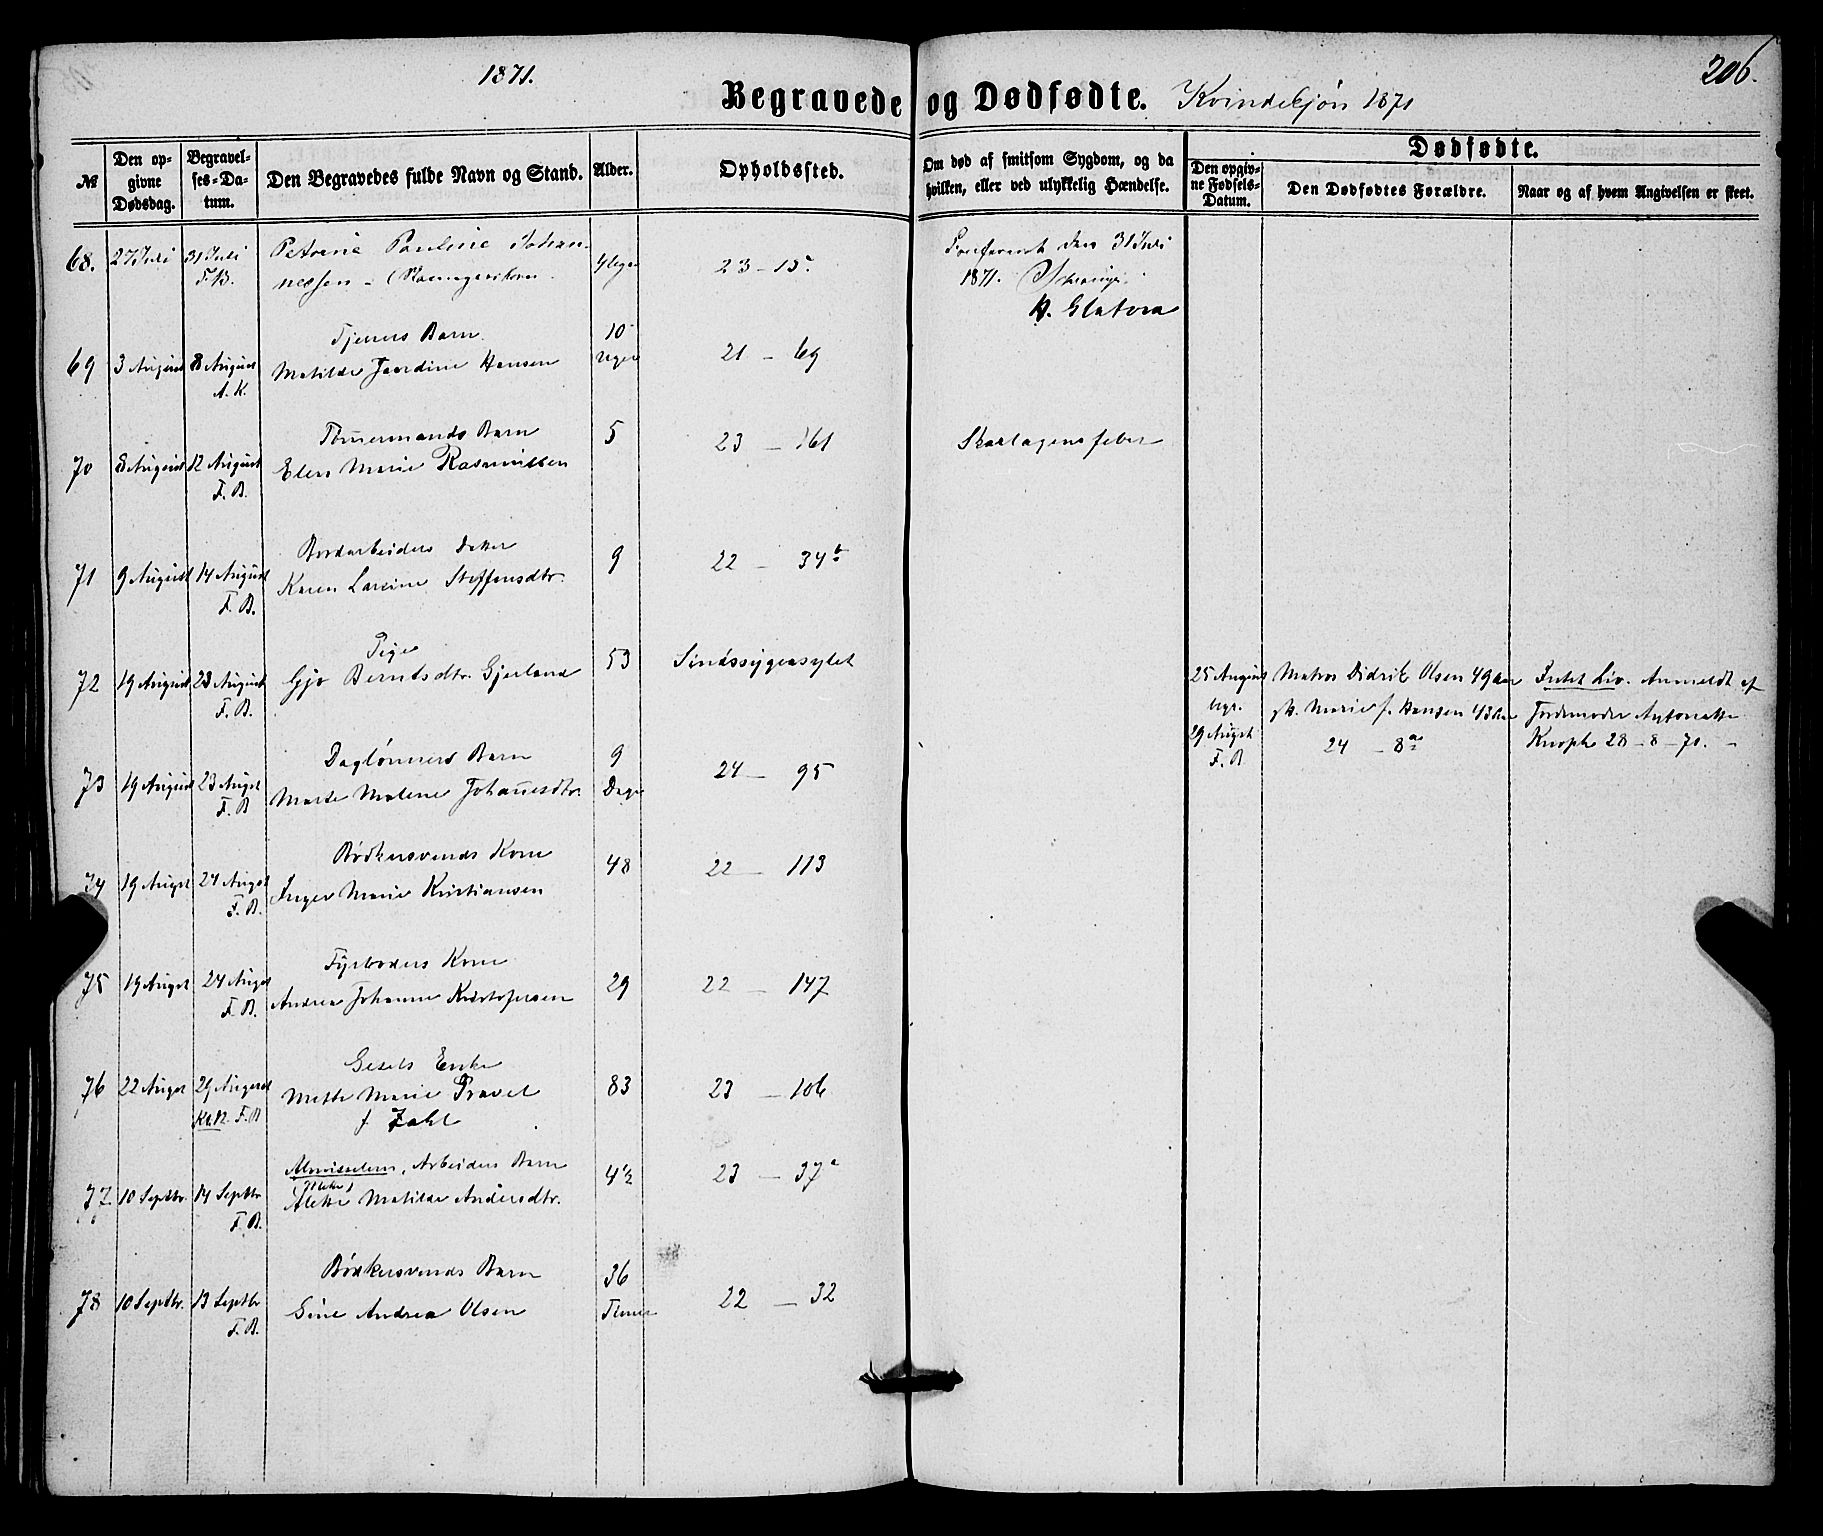 1871.
206.
Begravede og Dødfødte. Kvindekjøn 1871
№
Den op-
givne
Dødsdag.
Begravel-
ses-Da-
tum.
Den Begravedes fulde Navn og Stand.
Alder.
Opholdssted.
Om død af smitsom Sygdom, og da
hvilken, eller ved ulykkelig Hændelse.
Dødfødte.
Den opgiv-
ne Fødsels-
Datum.
Den Dødfødtes Forældre.
Naar og af hvem Angivelsen er skeet.
68. 27 Juli 31 Juli Petrine Pauline Johan-
F.B. nessen 4 Uger 23 - 15
den 31 Juli
1871.
Tjeners Barn 10
69 3 August 8 August Matilde Jaardine Hansen Uger 21 - 69
A. K.
Tømermands Barn 5 23 - 161 Skarlagensfeber
70 8 August 12 August Elen Marie Rasmussen
F. B.
Bordarbeiders Datter 9 22 - 34 b
71 9 August 14 August Karen Lavine Steffensdtr.
F. B.
Pige 53 Sindssygeasylet
72 19 August 23 August Gjo Berntsdtr. Gjerland
F. B.
25 August Matros Didrik Olsen 49 Aar Intet Liv. Anmeldt af
bgr. gh. Marie f. Hansen 43 Aar Jordemoder Antonette
29 August 24 - 8 Knoph 28 - 8 - 71.
F. B
Daglønners Barn 9 24 - 95
73 19 August 23 Augst Marte Malene Johannesdtr. Dage
F. B
Bødkersvends Kone 48 22 - 113
74 19 Augst 24 Augst Inger Marie Kristiansen
F. B.
Fyrbøders Kone
75 19 Augst 24 Augst Andrea Johanne Kristofersen 29 22 - 147
F. B.
Gesels Enke
76 22 Augst 29 August Mette Marie Pravel 83 23 - 106
F. B f. Zahl
Arbeiders Barn 4½ 23 - 37 a
77. 10 Septbr. 14 Septbr Alette Matilde Andersdtr.
F. B.
Bødkersvends Barn 36
78 10 Septbr. 13 Septbr Sine Andrea Olsen Timer 22 - 32
F. B.